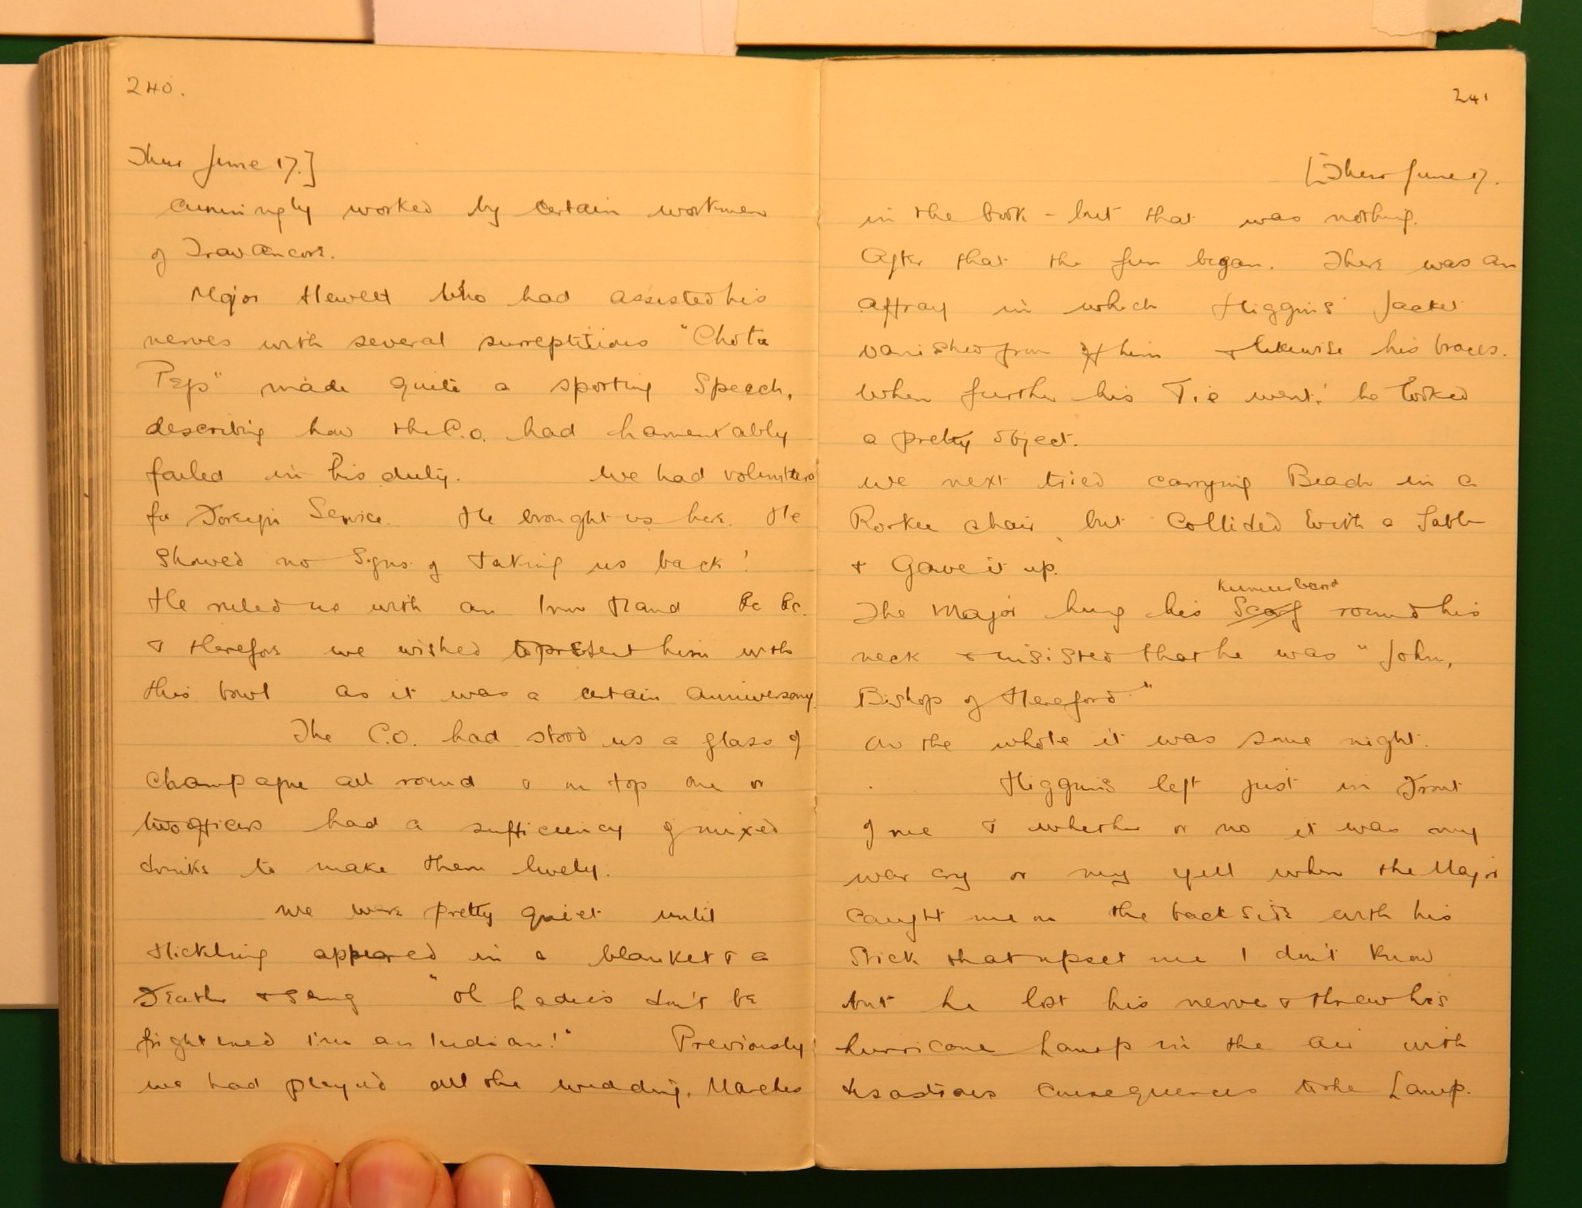 240.
Thur June 17.]
cunningly worked by certain workmen
of Travancore.
Major Hewett who had assisted his
nerves with several surreptitious "Chota
Pegs" made quite a sporting Speech,
describing how the C.O. had lamentably
failed in his duty. We had volunteered
for Foreign Service. He brought us here. He
showed no signs of taking us back!
He ruled us with an Iron Hand &c &c.
& therefore we wished to present him with
this bowl as it was a certain anniversary.
The C.O. had stood us a glass of
champagne all round & on top one or
two officers had a sufficiency of mixed
drinks to make them lively.
We were pretty quiet until
Hickling appeared in a blanket & a
Feather & sang "Oh Ladies don't be
frightened I'm an Indian!" Previously
we had played all the wedding Marches
241
[Thur June 17.
in the book - but that was nothing.
After that the fun began. There was an
affray in which Higgins' Jacket
vanished from off him & likewise his braces.
When further his Tie went: he looked
a pretty object.
We next tried carrying Beach in a
Rorkee chair, but Collided with a Table
& Gave it up.
The Major hung his Scarf kummerband round his
neck & insisted that he was "John,
Bishop of Hereford"
On the whole it was some night.
Higgins left just in Front
of me & whether or no it was my
war cry or my yell when the Major
caught me on the backside with his
Stick that upset me I don't know
but he lost his nerve & threw his
hurricane Lamp in the air with
disastrous consequences to the Lamp.